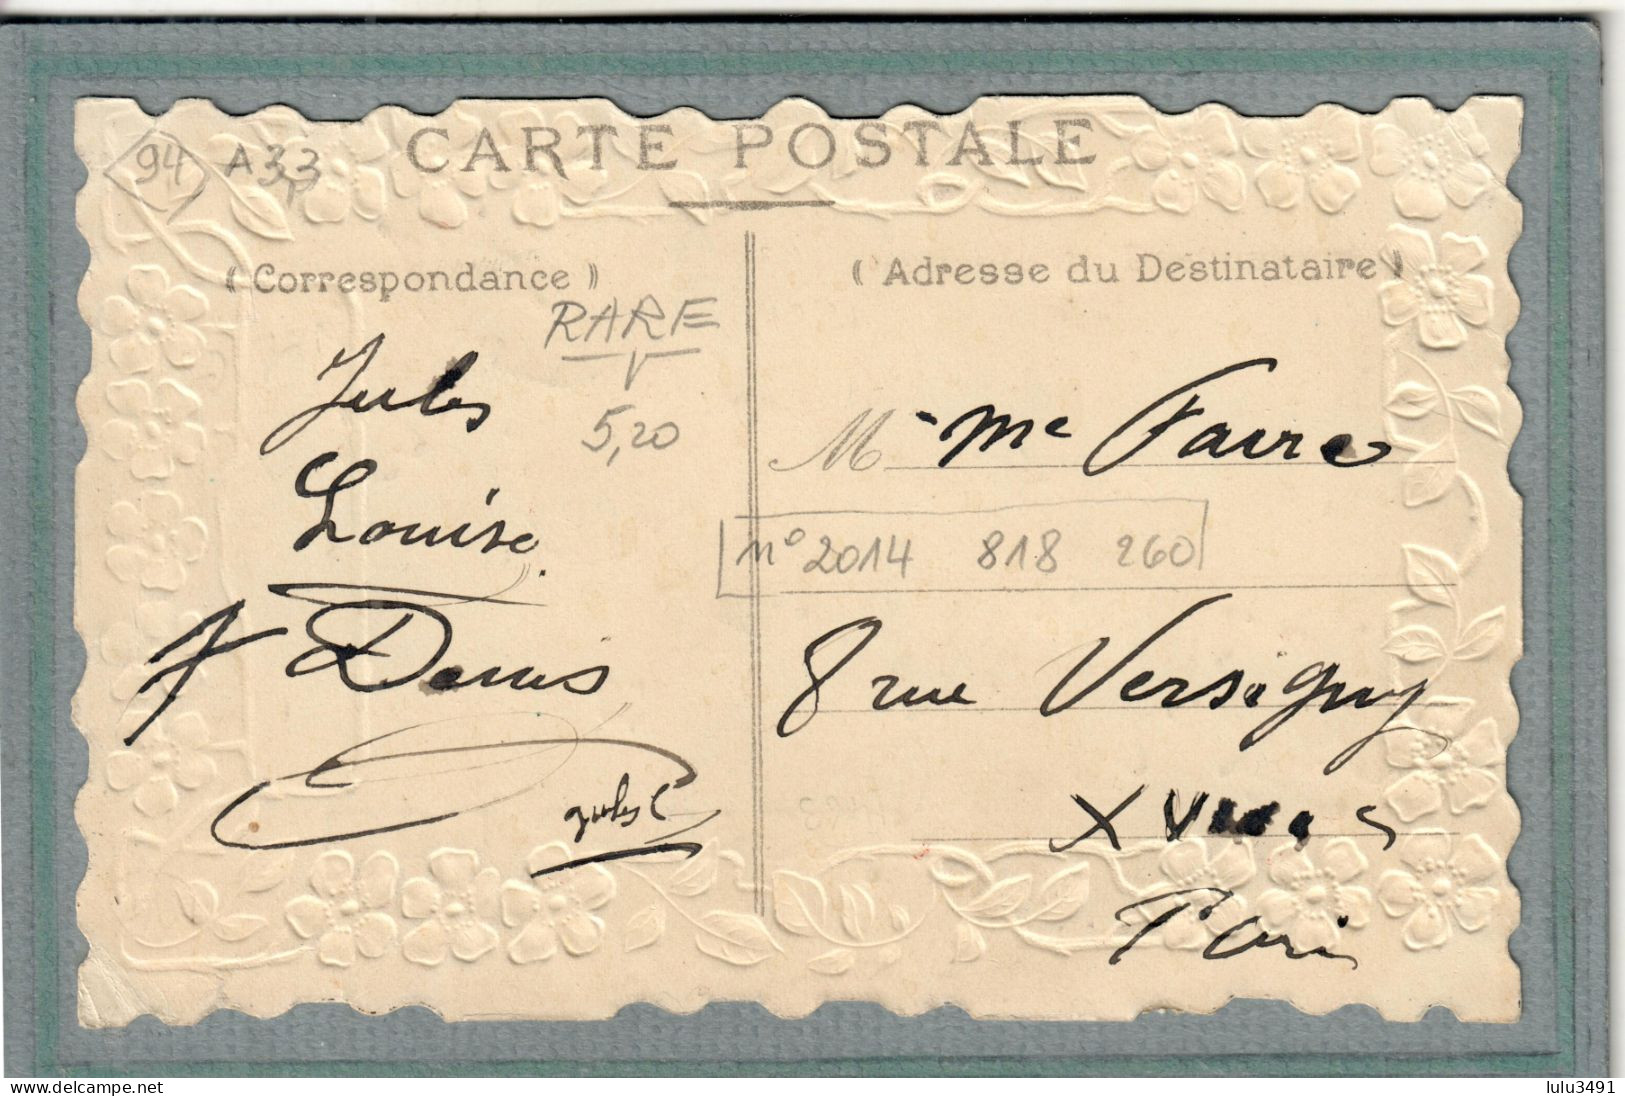 94 A33 CARTE POSTALE
( Correspondance )
RARE
5,20
Jules
Louise
Denis
Jules C
( Adresse du Destinataire )
M - me Favre
n° 2014 818 260
8 rue Versigny
Paris
lulu3491